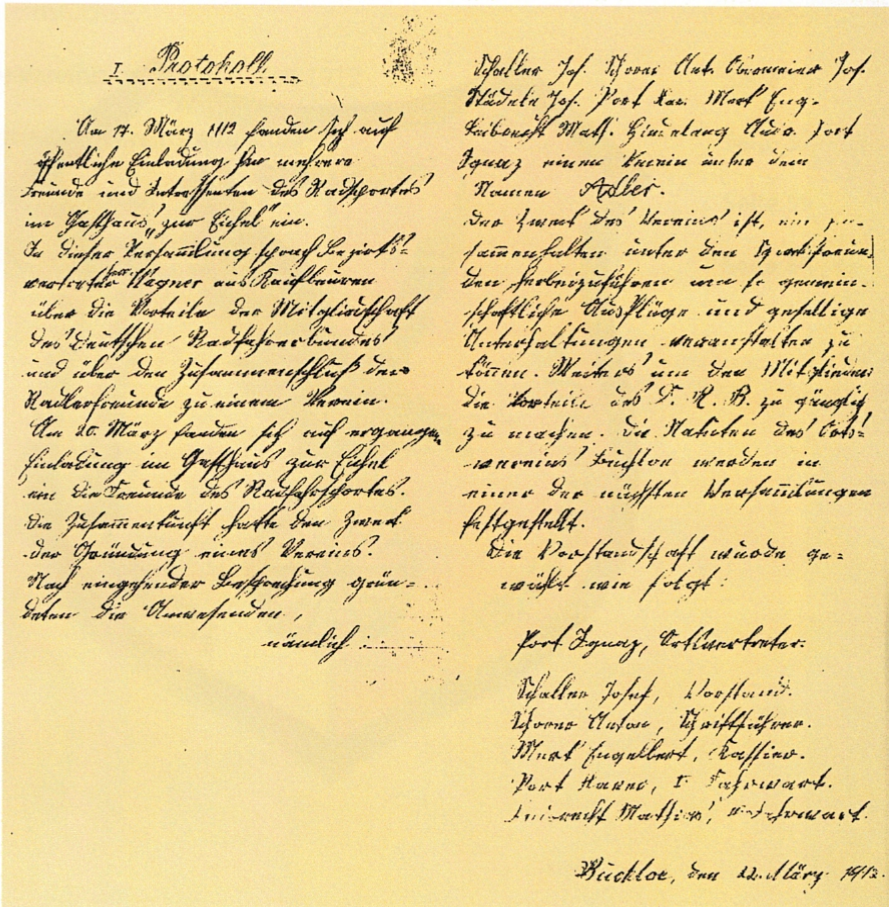 I. Protokoll.
Am 17. März 1912 fanden sich auf
öffentliche Einladung hin mehrere
Freunde und Interessenten des Radsportes
im Gasthaus "zur Eichel" ein.
In dieser Versammlung sprach Bezirks-
vertreter Herr Wagner aus Kaufbeuren
über die Vorteile der Mitgliedschaft
des Deutschen Radfahrerbundes
und über den Zusammenschluß der
Radlerfreunde zu einem Verein.
Am 20. März fanden sich auf ergangene
Einladung im Gasthaus zur Eichel
ein die Freunde des Radfahrsportes.
Die Zusammenkunft hatte den Zweck
der Gründung eines Vereins.
Nach eingehender Besprechung grün-
deten die Anwesenden,
nämlich
Schaller Jos. Schorer Ant. Obermeier Jos.
Städele Jos. Port Xav. Merk Eng.
Math. Hindelang Port
Ignaz einen Verein unter dem
Namen Adler.
Der Zweck des Vereins ist, ein Zu-
sammenhalten unter den Sportsfreun-
den herbeizuführen um so gemein-
schaftliche Ausflüge und gesellige
Unterhaltungen veranstalten zu
können. Weiters um den Mitgliedern
die Vorteile des D. R. B. zu gängig
zu machen. Die Statuten des Orts-
vereins Buchloe werden in
einer der nächsten Versammlungen
festgestellt.
Die Vorstandschaft wurde ge-
wählt wie folgt:
Port Ignaz, Ortsvertreter.
Schaller Josef, Vorstand.
Schorer Anton, Schriftführer.
Merk Engelbert, Kassier.
Port Xaver, I. Fahrwart.
Mathias, Fahrwart.
Buchloe, den 22. März 1912.